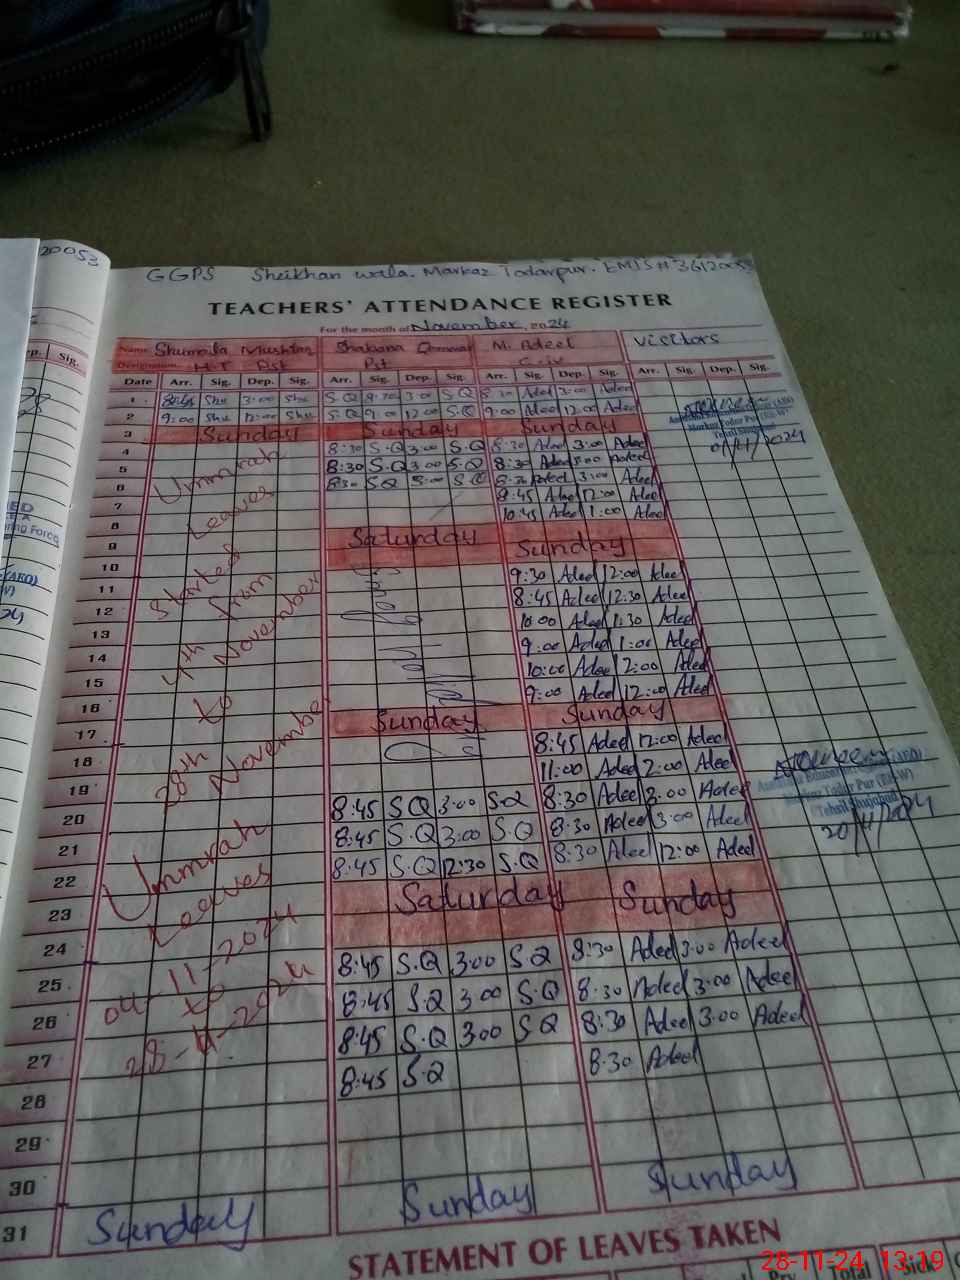 20053
GGPS Sheikhan wala. Markaz Todarpur. EMIS# 36120053
TEACHERS' ATTENDANCE REGISTER
For the month of November, 2024
Name Shumaila Mushtaq Shabana M. Adeel Visitors
Designation H.T Pst Pst C-iv
Date Arr. Sig. Dep. Sig. Arr. Sig. Dep. Sig. Arr. Sig. Dep. Sig. Arr. Sig. Dep. Sig.
1 8:45 Shu 3:00 Shu S.Q 8:30 3:00 S.Q 8:30 Adeel 3:00 Adeel
2 9:00 Shu 12:00 Shu S.Q 9:00 12:00 S.Q 9:00 Adeel 12:00 Adeel
3 Sunday Sunday Sunday
4 8:30 S.Q 3:00 S.Q 8:30 Adeel 3:00 Adeel
5 8:30 S.Q 3:00 S.Q 8:30 Adeel 3:00 Adeel
6 8:30 S.Q 3:00 S.Q 8:30 Adeel 3:00 Adeel
7 9:45 Adeel 12:00 Adeel
8 10:45 Adeel 1:00 Adeel
9 Saturday Sunday
10 9:30 Adeel 12:00 Adeel
11 8:45 Adeel 12:30 Adeel
12 10:00 Adeel 1:30 Adeel
13 9:00 Adeel 1:00 Adeel
14 10:00 Adeel 2:00 Adeel
15 9:00 Adeel 12:00 Adeel
16 Sunday Sunday
17 8:45 Adeel 12:00 Adeel
18 11:00 Adeel 2:00 Adeel
19 8:45 S.Q 3:00 S.Q 8:30 Adeel 3:00 Adeel
20 8:45 S.Q 3:00 S.Q 8:30 Adeel 3:00 Adeel
21 8:45 S.Q 12:30 S.Q 8:30 Adeel 12:00 Adeel
22 Saturday Sunday
23
24 8:45 S.Q 3:00 S.Q 8:30 Adeel 3:00 Adeel
25 8:45 S.Q 3:00 S.Q 8:30 Adeel 3:00 Adeel
26 8:45 S.Q 3:00 S.Q 8:30 Adeel 3:00 Adeel
27 8:45 S.Q 8:30 Adeel
28
29
30
31 Sunday Sunday Sunday
Ummrah
Leaves
Started
from
4th November
to
28th November
Ummrah
Leaves
04-11-2024
to
28-11-2024
Markaz Todar Pur (EE-W)
Tehsil Shujabad
01/11/2024
Markaz Todar Pur (EE-W)
Tehsil Shujabad
20/11/2024
STATEMENT OF LEAVES TAKEN
Total
28-11-24 13:19